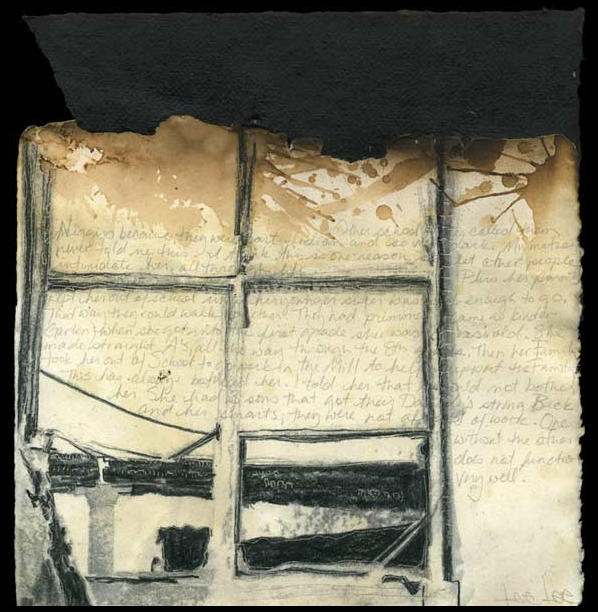 because they were part Indian and so
never told me this. I think this is one reason let other people
intimidate her all her life. Plus her parents
kept her out of school until her younger sister was old enough to go.
That way they could walk together. They had primmer same as kinder
Garten. When she got into the first grade she was years old. She
made straight A's all the way through the 8th grade. Then her Family
took her out of School to work in the Mill to help support the Family.
This has always bothered her. I told her that should not bother
her. She had sons that got their Daddy's strong Back
and her smarts, they were not afraid of work. One
without the other
does not function
very well.